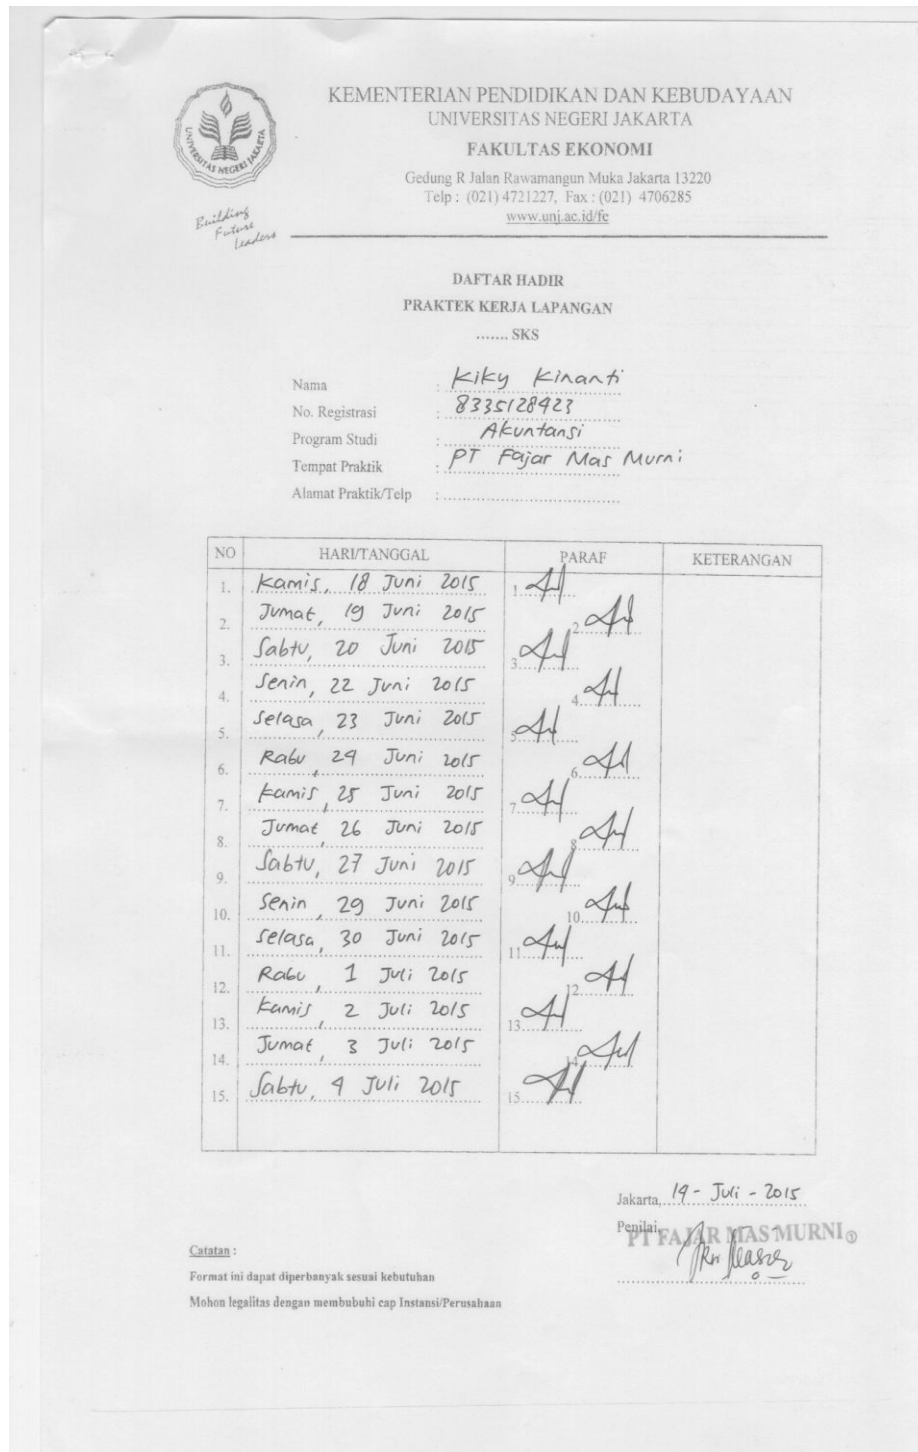 KEMENTERIAN PENDIDIKAN DAN KEBUDAYAAN
UNIVERSITAS NEGERI JAKARTA
FAKULTAS EKONOMI
Gedung R Jalan Rawamangun Muka Jakarta 13220
Telp : (021) 4721227, Fax : (021) 4706285
www.unj.ac.id/fe
UNIVERSITAS NEGERI JAKARTA
Building
Future
Leaders
DAFTAR HADIR
PRAKTEK KERJA LAPANGAN
....... SKS
Nama : Kiky Kinanti
No. Registrasi : 8335128423
Program Studi : Akuntansi
Tempat Praktik : PT Fajar Mas Murni
Alamat Praktik/Telp : ....................................
NO HARI/TANGGAL PARAF KETERANGAN
1. Kamis, 18 Juni 2015 1
2. Jumat, 19 Juni 2015 2
3. Sabtu, 20 Juni 2015 3
4. Senin, 22 Juni 2015 4
5. Selasa, 23 Juni 2015 5
6. Rabu, 24 Juni 2015 6
7. Kamis, 25 Juni 2015 7
8. Jumat, 26 Juni 2015 8
9. Sabtu, 27 Juni 2015 9
10. Senin, 29 Juni 2015 10
11. Selasa, 30 Juni 2015 11
12. Rabu, 1 Juli 2015 12
13. Kamis, 2 Juli 2015 13
14. Jumat, 3 Juli 2015 14
15. Sabtu, 4 Juli 2015 15
Jakarta, 14 - Juli - 2015
Penilai,
PT FAJAR MAS MURNI ①
Catatan :
Format ini dapat diperbanyak sesuai kebutuhan
Mohon legalitas dengan membubuhi cap Instansi/Perusahaan